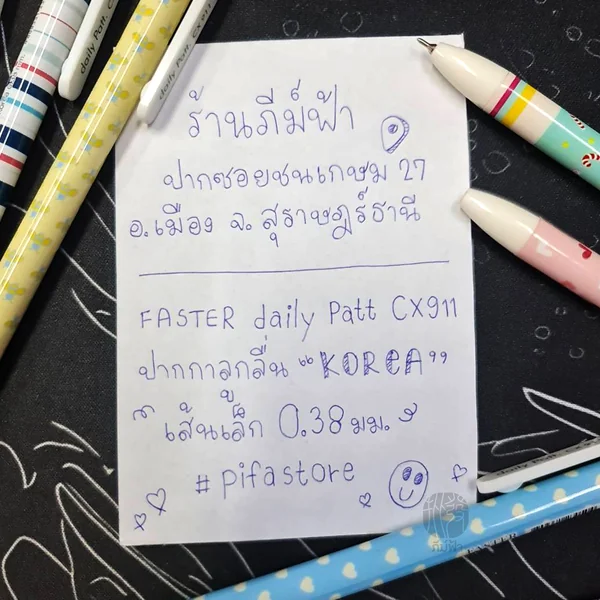 daily Patt. CX911
daily Patt. CX
ร้านภีม์ฟ้า
ปากซอยชนเกษม 27
อ.เมือง จ. สุราษฎร์ธานี
FASTER daily Patt CX911
ปากกาลูกลื่น “KOREA”
เส้นเล็ก 0.38 มม.
#pifastore